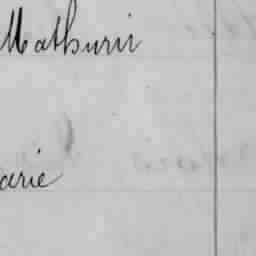 Mathurin
arie